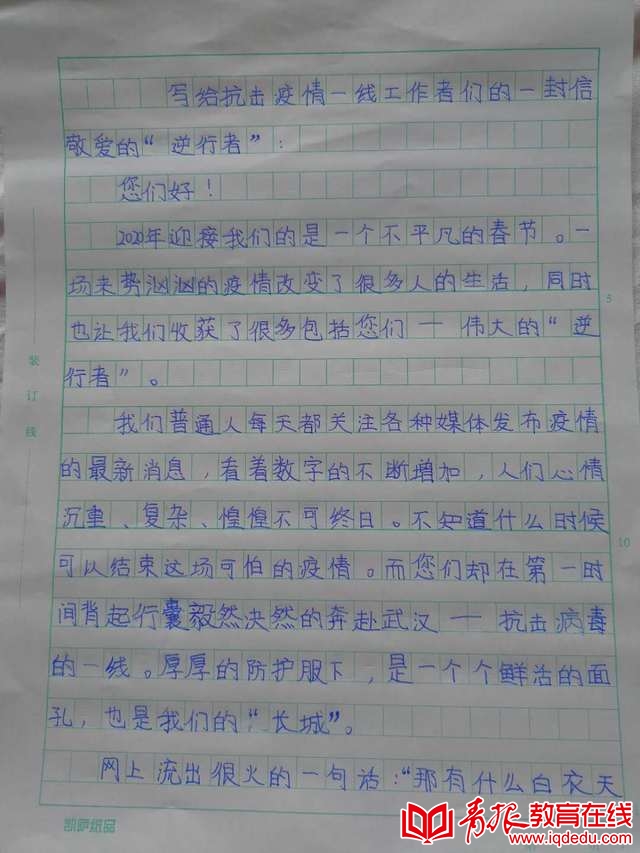 写给抗击疫情一线工作者们的一封信
敬爱的“逆行者”:
您们好！
2020年迎接我们的是一个不平凡的春节。一
场来势汹汹的疫情改变了很多人的生活，同时
也让我们收获了很多包括您们一伟大的“逆
行者”。
我们普通人每天都关注各种媒体发布疫情
的最新消息，看着数字的不断增加，人们心情
沉重、复杂、惶惶不可终日。不知道什么时候
可以结束这场可怕的疫情。而您们却在第一时
间背起行囊毅然决然的奔赴武汉一抗击病毒
的一线。厚厚的防护服下，是一个个鲜活的面
孔，也是我们的“长城”。
网上流出很火的一句话:“那有什么白衣天
装订线
5
10
凯萨纸品
青报教育在线
www.iqdedu.com